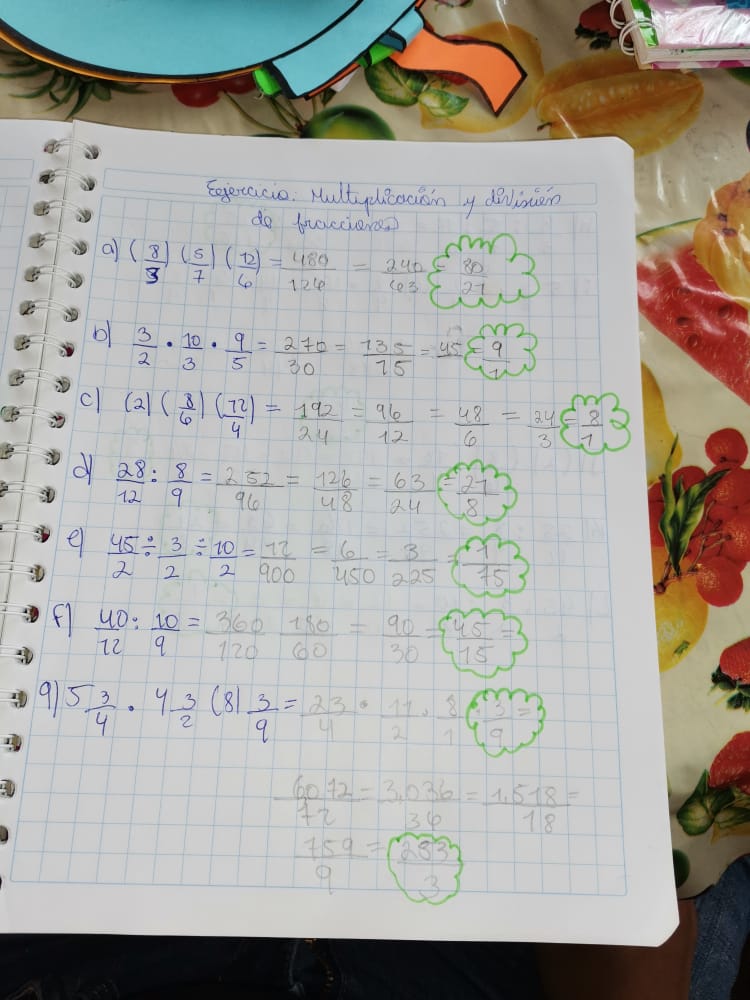 Ejercicio: Multiplicación y división
de fracciones
a) (8/3) (5/7) (12/6) = 480/126 = 240/63 = 80/21
b) 3/2 · 10/3 · 9/5 = 270/30 = 135/15 = 45 = 9/1
c) (2) (8/6) (12/4) = 192/24 = 96/12 = 48/6 = 24/3 = 8/1
d) 28/12 : 8/9 = 252/96 = 126/48 = 63/24 = 21/8
e) 45/2 ÷ 3/2 ÷ 10/2 = 12/900 = 6/450 = 3/225 = 1/75
f) 40/12 : 10/9 = 360/120 180/60 = 90/30 = 45/15 =
g) 5 3/4 · 4 3/2 (8) 3/9 = 23/4 · 11/2 · 8/1 · 3/9 =
6072/72 = 3,036/36 = 1,518/18 =
759/9 = 253/3